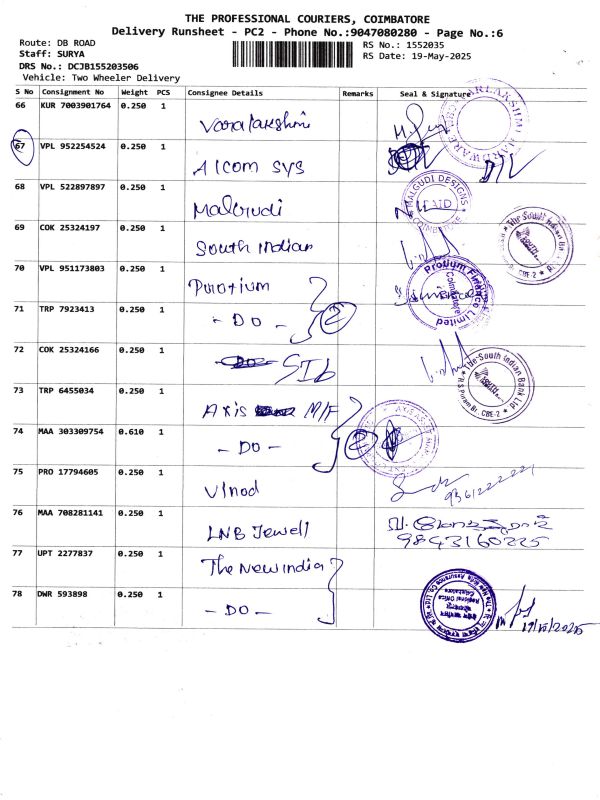 THE PROFESSIONAL COURIERS, COIMBATORE
Delivery Runsheet - PC2 - Phone No.:9047080280 - Page No.:6
Route: DB ROAD
Staff: SURYA
DRS No.: DCJB155203506
Vehicle: Two Wheeler Delivery
RS No.: 1552035
RS Date: 19-May-2025
S No Consignment No Weight PCS Consignee Details Remarks Seal & Signature
66 KUR 7003901764 0.250 1 Varalakshmi
67 VPL 952254524 0.250 1 Alcom sys
68 VPL 522897897 0.250 1 Malgudi
MALGUDI DESIGNS
PAID
COIMBATORE
69 COK 25324197 0.250 1 South Indian
The South Indian Bank
CBE-2
70 VPL 951173803 0.250 1 Protium
Protium Finance Limited
Coimbatore
71 TRP 7923413 0.250 1 - DO - 2
72 COK 25324166 0.250 1 SIb
The South Indian Bank Ltd
R.S Puram Br. CBE-2
73 TRP 6455034 0.250 1 Axis M/F
74 MAA 303309754 0.610 1 - DO - 2
75 PRO 17794605 0.250 1 Vinod
76 MAA 708281141 0.250 1 LNB Jewell
9843160225
77 UPT 2277837 0.250 1 The New India
78 DWR 593898 0.250 1 - DO -
Regional Office
Coimbatore